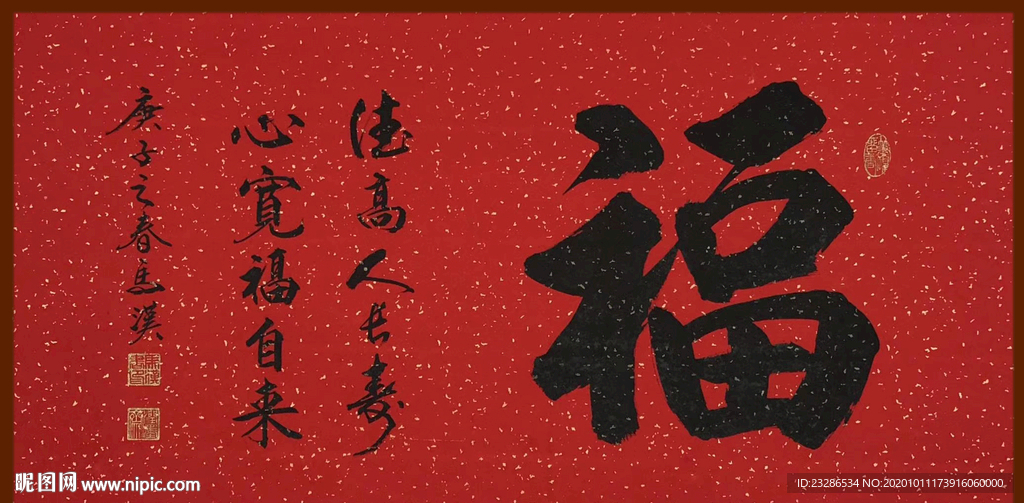 福
德高人长寿
心宽福自来
庚子之春马汉
昵图网 www.nipic.com
ID:23286534 NO:20201011173916060000